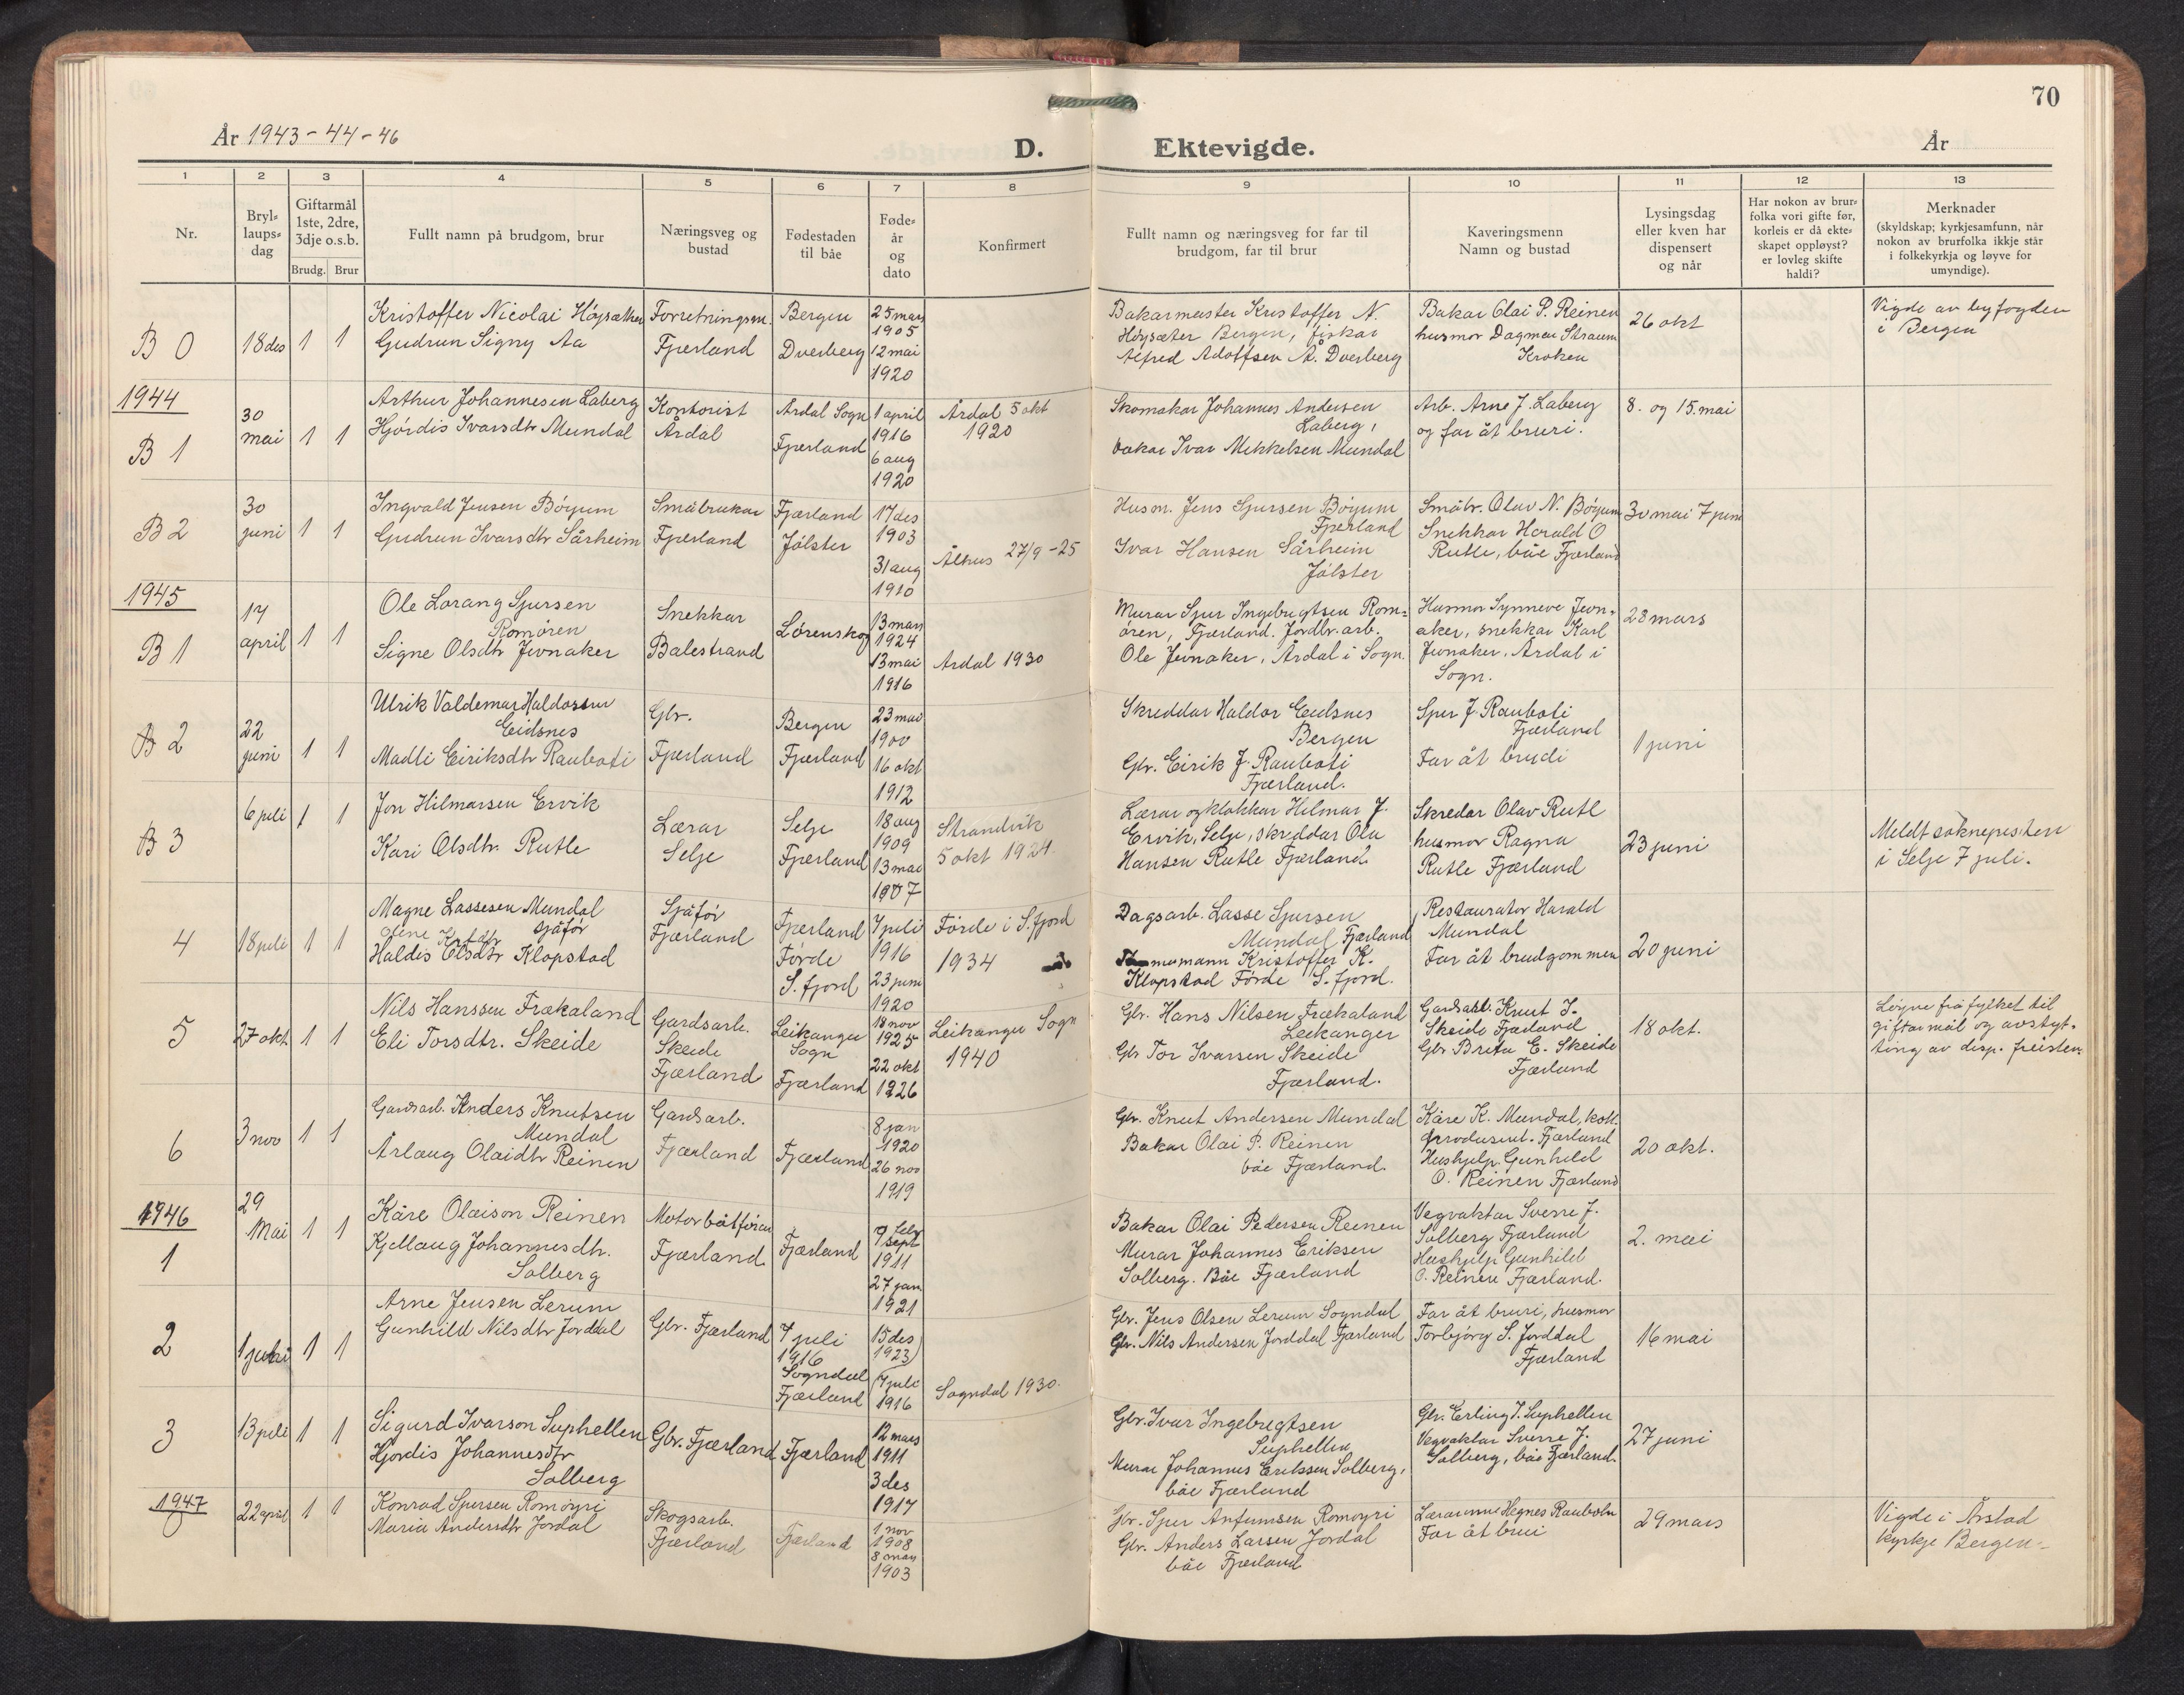 70
År 1943-44-46
D. Ektevigde.
År
1 2 3 4 5 6 7 8 9 10 11 12 13
Nr.
Bryl-
laups-
dag
Giftarmål
1ste, 2dre,
3dje o.s.b.
Brudg. Brur
Fullt namn på brudgom, brur
Næringsveg og
bustad
Fødestaden
til båe
Føde-
år
og
dato
Konfirmert
Fullt namn og næringsveg for far til
brudgom, far til brur
Kaveringsmenn
Namn og bustad
Lysingsdag
eller kven har
dispensert
og når
Har nokon av brur-
folka vori gifte før,
korleis er då ekte-
skapet oppløyst?
er lovleg skifte
haldi?
Merknader
(skyldskap; kyrkjesamfunn, når
nokon av brurfolka ikkje står
i folkekyrkja og løyve for
umyndige).
B 0
18 des
1 1
Kristoffer Nicolai Höysæther
Gudrun Signy Aa
Forretningsm.
Fjærland
Bergen
Dverberg
25 mars
1905
12 mai
1920
Bakarmester Kristoffer N.
Höysæter Bergen, fiskar
Alfred Adolfsen Å. Dverberg
Bakar Olai P. Reinen
husmor Dagmar Straum
Kroken
26 okt
Vigde av byfogden
i Bergen
1944
B 1
30
mai
1 1
Arthur Johannesen Laberg
Hjördis Ivarsdtr Mundal
Kontorist
Årdal
Årdal Sogn
Fjærland
1 april
1916
6 aug
1920
Årdal 5 okt
1920
Skomakar Johannes Andersen
Laberg,
bakar Ivar Mikkelsen Mundal
Arb. Arne J. Laberg
og far åt bruri.
8. og 15. mai
B 2
30
juni
1 1
Ingvald Jensen Böyum
Gudrun Ivarsdtr Sårheim
Småbrukar
Fjærland
Fjærland
Jölster
17 des
1903
31 aug
1910
Ålhus 27/9-25
Husm. Jens Sjursen Böyum
Fjærland
Ivar Hansen Sårheim
Jölster
Småbr. Olav N. Böyum
Snekkar Harald O
Rutle, båe Fjærland
30 mai 7 juni
1945
B 1
17
april
1 1
Ole Lorang Sjursen
Romören
Signe Olsdtr Jevnaker
Snekkar
Balestrand
Lörenskog
13 mars
1924
13 mai
1916
Årdal 1930
Murar Sjur Ingebrigtsen Rom-
ören, Fjærland. Jordbr. arb.
Ole Jevnaker, Årdal i Sogn.
Husmor Synneve Jevn-
aker, snekkar Karl
Jevnaker, Årdal i
Sogn.
28 mars
B 2
22
juni
1 1
Ulrik Valdemar Haldorsen
Eidsnes
Madli Eiriksdtr Rauboti
Gbr.
Fjærland
Bergen
Fjærland
23 mai
1900
16 okt
1912
Skreddar Haldor Eidsnes
Bergen
Gbr. Eirik J. Rauboti
Fjærland.
Sjur J. Rauboti
Fjærland
Far åt brudi
1 juni
B 3
6 juli
1 1
Jon Hilmarsen Ervik
Kari Olsdtr. Rutle
Lærar
Selje
Selje
Fjærland
18 aug
1909
13 mai
1907
Strandvik
5 okt 1924.
Lærar og klokkar Hilmar J.
Ervik, Selje, skreddar Ola
Hansen Rutle Fjærland.
Skredar Olav Rutl
husmor Ragna
Rutle Fjærland
23 juni
Meldt soknepresten
i Selje 7 juli.
4
18 juli
1 1
Magne Lassesen Mundal
sjåför
Haldis Olsdtr Klopstad
Sjåför
Fjærland
Fjærland
Förde
S. fjord
7 juli
1916
23 juni
1920
Förde i S. fjord
1934
Dagsarb. Lasse Sjursen
Mundal Fjærland
Kristoffer K.
Klopstad Förde S. fjord.
Restauratør Harald
Mundal
Far åt brudgommen
20 juni
5
27 okt
1 1
Nils Hanssen Frækaland
Eli Torsdtr. Skeide
Gardsarb.
Skeide
Fjærland
Leikanger
Sogn
Fjærland
18 nov
1925
22 okt
1926
Leikanger Sogn
1940
Gbr. Hans Nilsen Frækaland
Leikanger
Gbr Tor Ivarsen Skeide
Fjærland.
Gardsarb. Knut I.
Skeide Fjærland
Gbr Brita E. Skeide
Fjærland
18 okt.
Løyve frå fylket til
giftarmål og avstyt-
ting av disp. fristen.
6
3 nov
1 1
Gardsarb. Anders Knutsen
Mundal
Årlaug Olaidtr Reinen
Gardsarb.
Fjærland
Fjærland
8 jan
1920
26 nov
1919
Gbr. Knut Andersen Mundal
Bakar Olai P. Reinen
båe Fjærland.
Kåre K. Mundal, kolt.
produsent. Fjærland
Hushjelp Gunhild
O. Reinen Fjærland
20 okt.
1946
1
29
Mai
1 1
Kåre Olaison Reinen
Kjellaug Johannesdtr.
Solberg
Motorbåtförar
Fjærland.
Fjærland
9 sept
1911
27 jan
1921
Bakar Olai Pedersen Reinen
Murar Johannes Eriksen
Solberg. Båe Fjærland
Vegvaktar Sverre J.
Solberg Fjærland
Hushjelp Gunhild
O. Reinen Fjærland.
2. mai
2
1 juni
1 1
Arne Jensen Lerum
Gunhild Nilsdtr Jorddal
Gbr. Fjærland
7 juli
1916
Sogndal
Fjærland
15 des
1923
7 juli
1916
Sogndal 1930.
Gbr. Jens Olsen Lerum Sogndal
Gbr. Nils Andersen Jorddal Fjærland
Far åt bruri, husmor
Torbjörg S. Jorddal
Fjærland
16 mai
3
13 juli
1 1
Sigurd Ivarson Suphellen
Hjördis Johannesdtr
Solberg
Gbr. Fjærland
Fjærland
12 mars
1911
3 des
1917
Gbr. Ivar Ingebrigtsen
Suphellen
Murar Johannes Erikssen Solberg,
båe Fjærland
Gbr. Erling I. Suphellen
Vegvaktar Sverre J.
Solberg, båe Fjærland.
27 juni
1947
0
22 april
1 1
Konrad Sjursen Romöyri
Maria Andersdtr Jordal
Skogsarb.
Fjærland
Fjærland
1 nov
1908
8 mars
1903
Gbr. Sjur Anfinnsen Romöyri
Gbr. Anders Larsen Jordal
båe Fjærland
Lærarinne Hagnes Raubotn
Far åt brui
29 mars
Vigde i Årstad
kyrkje Bergen-